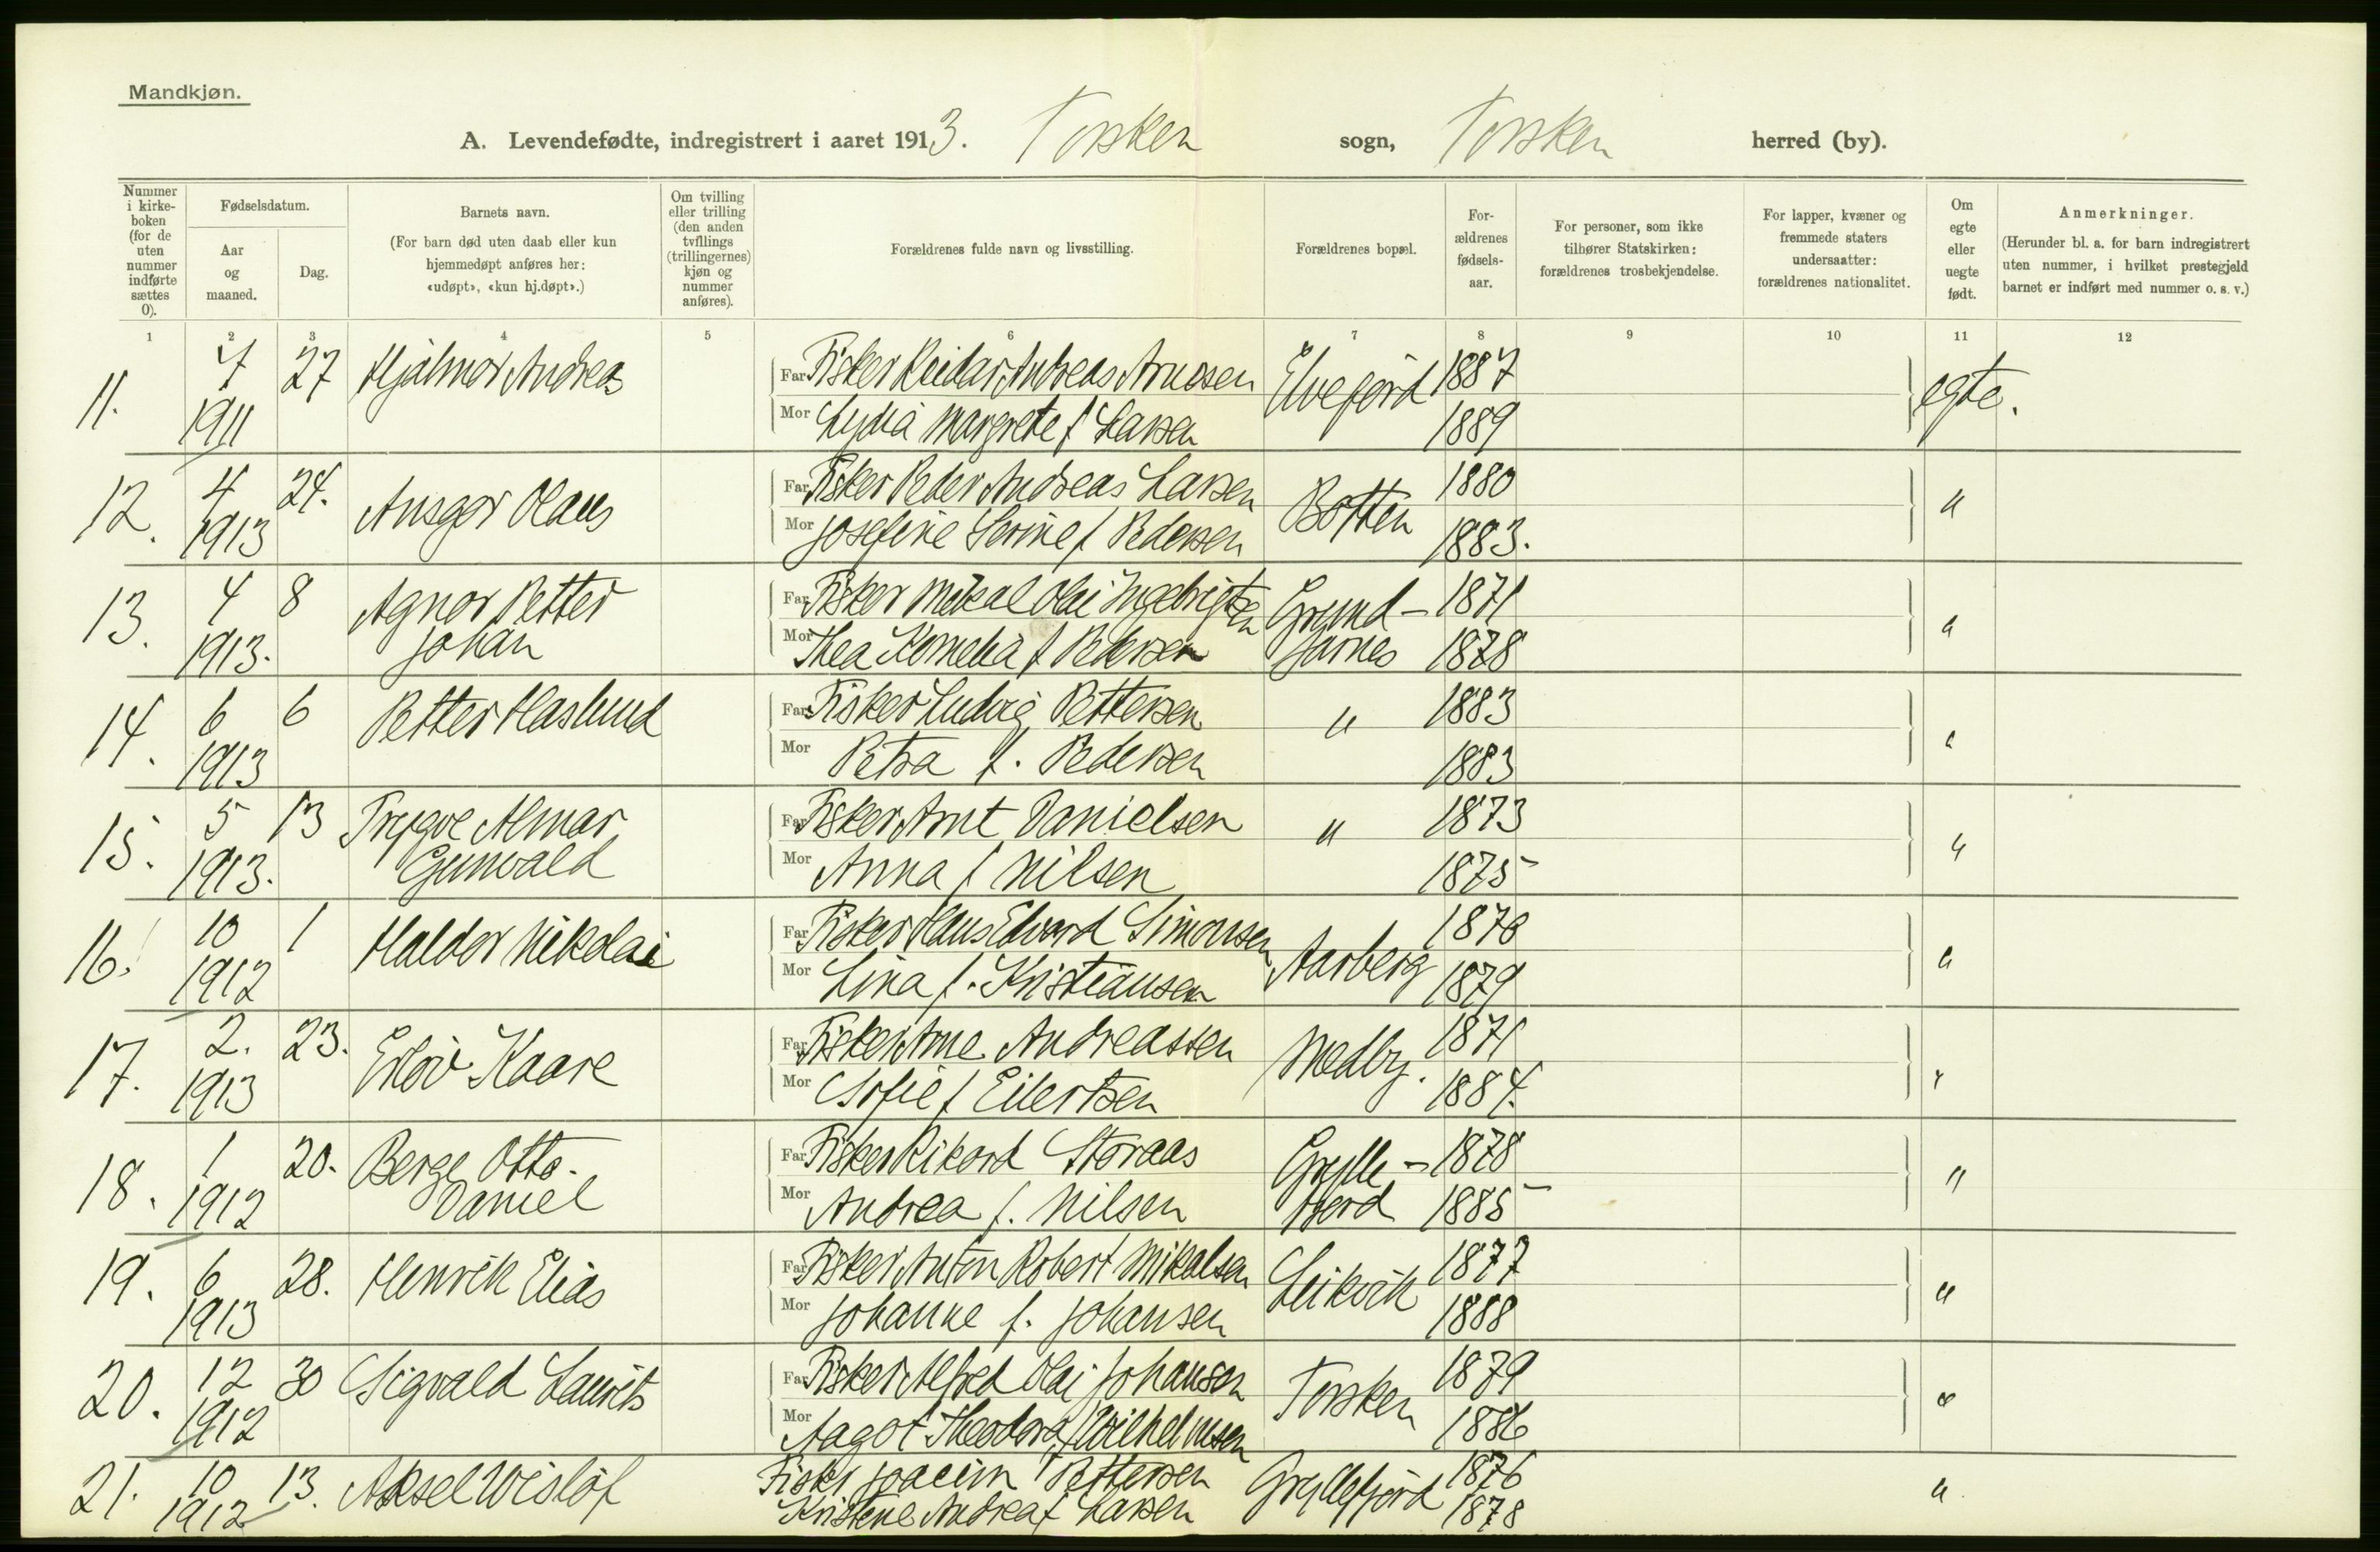 Mandkjøn.
A. Levendefødte, indregistrert i aaret 1913. Torsken sogn, Torsken herred (by).
Nummer i kirke-boken (for de uten nummer indførte sættes 0).
Fødselsdatum.
Aar og maaned.
Dag.
Barnets navn.
(For barn død uten daab eller kun hjemmedøpt anføres her: «udøpt», «kun hj.døpt».)
Om tvilling eller trilling (den anden tvillings (trillingernes) kjøn og nummer anføres).
Forældrenes fulde navn og livsstilling.
Forældrenes bopæl.
For-ældrenes fødsels-aar.
For personer, som ikke tilhører Statskirken: forældrenes trosbekjendelse.
For lapper, kvæner og fremmede staters undersaatter: forældrenes nationalitet.
Om egte eller uegte født.
Anmerkninger.
(Herunder bl. a. for barn indregistrert uten nummer, i hvilket prestegjeld barnet er indført med nummer o. s. v.)
1 2 3 4 5 6 7 8 9 10 11 12
11. 7 27 Hjalmar Andreas Far Fisker Reidar Andreas Arnesen Elvefjord 1887 egte.
1911 Mor Lydia Margrete f Larsen 1889
12. 4 24. Ansgar Olaus Far Fisker Peder Andreas Larsen Botten 1880 "
1913 Mor Josefine Serine f Pedersen 1883.
13. 4 8 Agnor Petter Far Fisker Mikal Olai Ingebrigtsen Grund- 1871 "
1913. Johan Mor Thea Kornelia f Pedersen farnes 1878
14. 6 6 Petter Haslund Far Fisker Ludvig Pettersen " 1883 "
1913 Mor Petra f. Pedersen 1883
15. 5 13 Trygve Almar Far Fisker Arnt Danielsen " 1873 "
1913. Gunvald Mor Anna f Nilsen 1875
16. 10 1 Haldor Nikolai Far Fisker Hans Edvard Simonsen Aarberg 1878 "
1912 Mor Lina f. Kristiansen 1879
17. 2. 23. Erlov Kaare Far Fisker Arne Andreassen Medby. 1871 "
1913 Mor Sofie f Eilertsen 1884.
18. 1 20. Berge Otto Far Fisker Rikard Storaas Grylle- 1878 "
1912 Daniel Mor Andrea f. Nilsen fjord 1885
19. 6 28. Henrik Elias Far Fisker Anton Robert Mikalsen Leikvik 1877 "
1913 Mor Johanne f. Johansen 1888
20. 12 30 Sigvald Laurits Far Fisker Alfred Olai Johansen Torsken 1879 "
1912 Mor Aagot Theodora f Wilhelmsen 1886
21. 10 13. Aksel Wisløf Fisker Joacim Pettersen Gryllefjord 1876 "
1912 Kristine Andrea f Larsen 1878